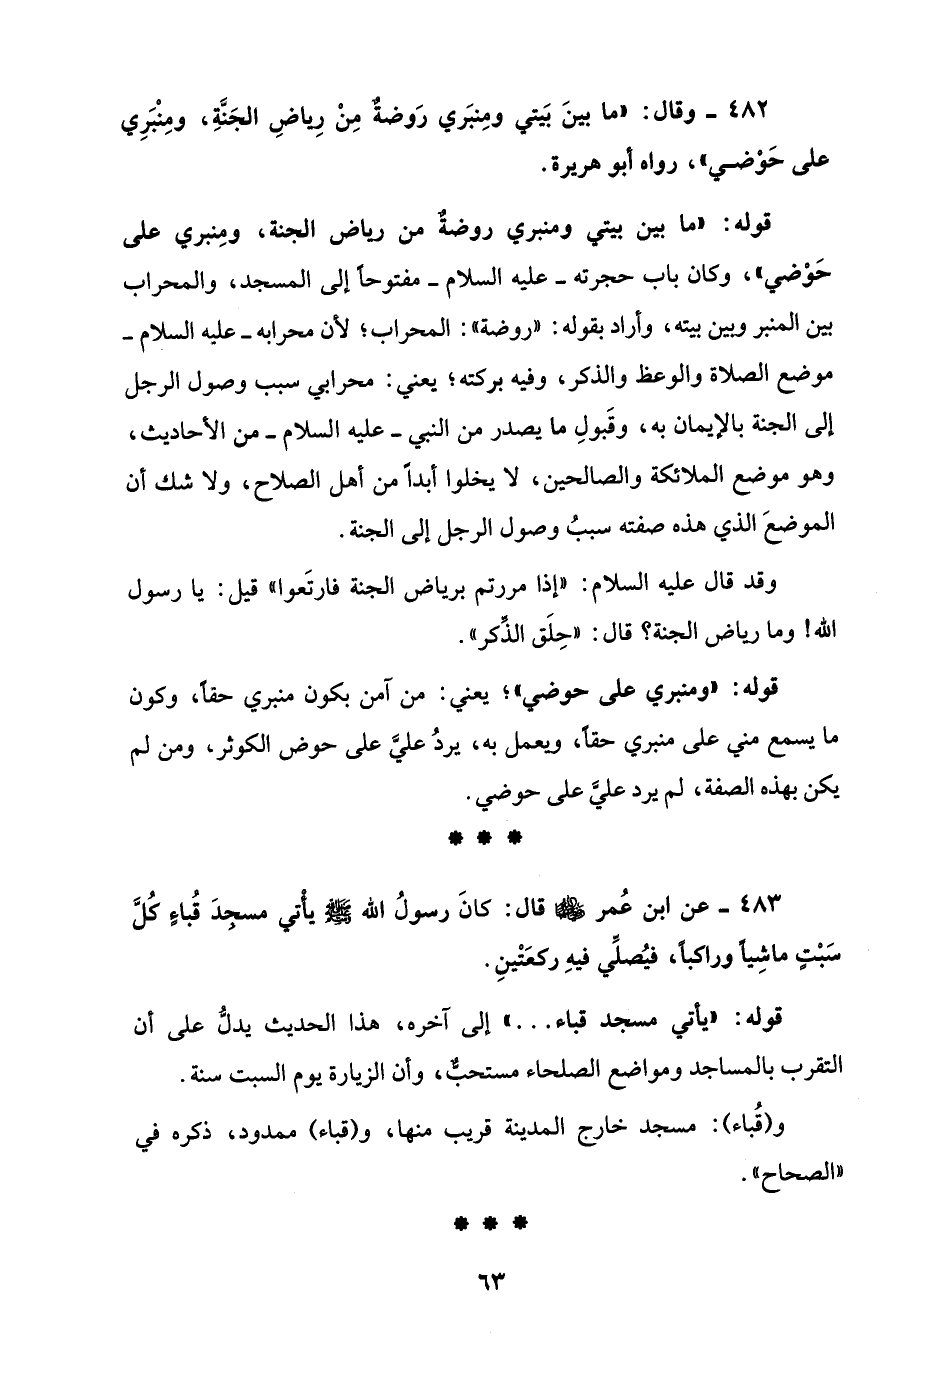 ٤٨٢ ـ وقال: «ما بينَ بَيتي ومِنبَري رَوضةٌ مِنْ رِياضِ الجَنَّةِ، ومِنْبَرِي
على حَوْضـي»، رواه أبو هريرة.
قوله: «ما بين بيتي ومنبري روضةٌ من رياض الجنة، ومِنبري على
حَوْضي»، وكان باب حجرته ـ عليه السلام ـ مفتوحاً إلى المسجد، والمحراب
بين المنبر وبين بيته، وأراد بقوله: «روضة»: المحراب؛ لأن محرابه ـ عليه السلام ـ
موضع الصلاة والوعظ والذكر، وفيه بركته؛ يعني: محرابي سبب وصول الرجل
إلى الجنة بالإيمان به، وقَبولِ ما يصدر من النبي ـ عليه السلام ـ من الأحاديث،
وهو موضع الملائكة والصالحين، لا يخلوا أبداً من أهل الصلاح، ولا شك أن
الموضعَ الذي هذه صفته سببُ وصول الرجل إلى الجنة.
وقد قال عليه السلام: «إذا مررتم برياض الجنة فارتَعوا» قيل: يا رسول
الله! وما رياض الجنة؟ قال: «حِلَق الذِّكر».
قوله: «ومنبري على حوضي»؛ يعني: من آمن بكون منبري حقاً، وكون
ما يسمع مني على منبري حقاً، ويعمل به، يردُ عليَّ على حوض الكوثر، ومن لم
يكن بهذه الصفة، لم يرد عليَّ على حوضي.
* * *
٤٨٣ ـ عن ابن عُمر ﵁ قال: كانَ رسولُ الله ﷺ يأْتي مسجِدَ قُباءٍ كُلَّ
سَبْتٍ ماشِياً وراكباً، فيُصلِّي فيهِ ركعَتْينِ.
قوله: «يأتي مسجد قباء...» إلى آخره، هذا الحديث يدلُّ على أن
التقرب بالمساجد ومواضع الصلحاء مستحبٌّ، وأن الزيارة يوم السبت سنة.
و(قُباء): مسجد خارج المدينة قريب منها، و(قباء) ممدود، ذكره في
«الصحاح».
* * *
٦٣